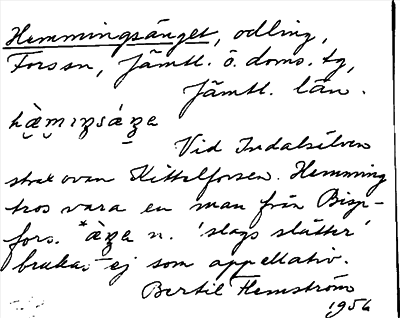 Hemmingsänget, odling,
Forssn, Jämtl. ö. doms. tg,
Jämtl. län.
Vid Indalsälven
strax ovan Kittelforsen. Hemming
tros vara en man från Bisp-
fors. *ày̨a n. 'slags slåtter'
brukas ej som appellativ.
Bertil Flemström
1956